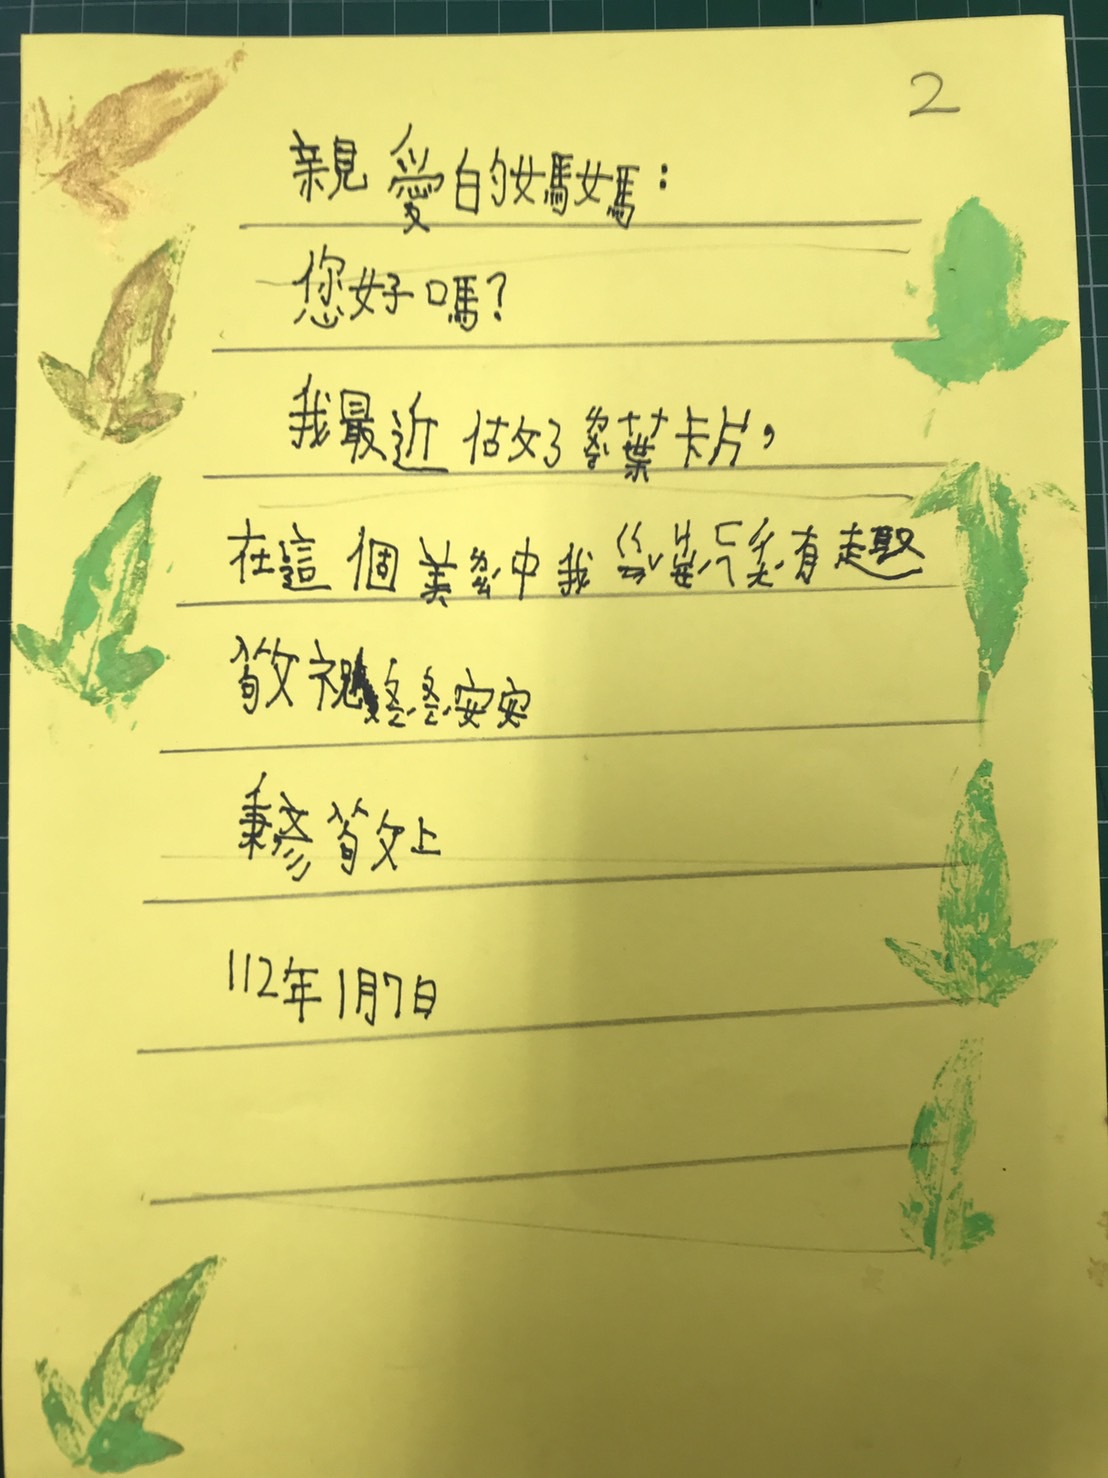 2
親愛的媽媽：
您好嗎?
我最近做好了葉卡片，
在這個美中我有趣
敬祝安安
秉彥敬上
112年1月7日